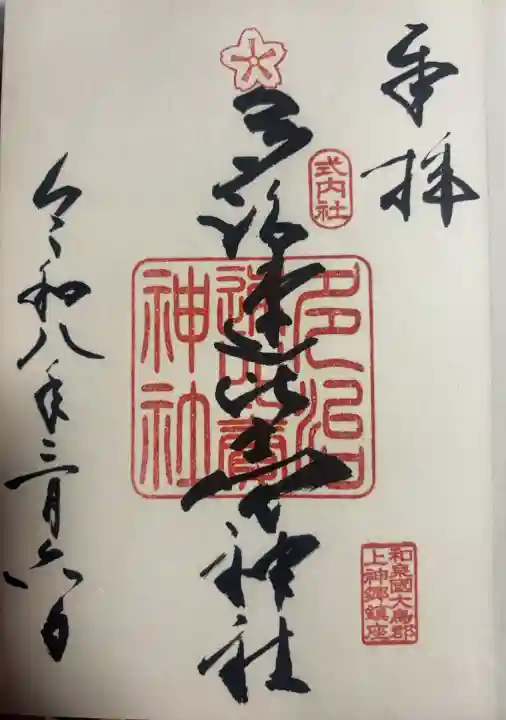 奉拝
式内社
和泉國大鳥郡
上神郷鎮座
多治速比売神社
多治
速比賣
神社
令和八年三月六日